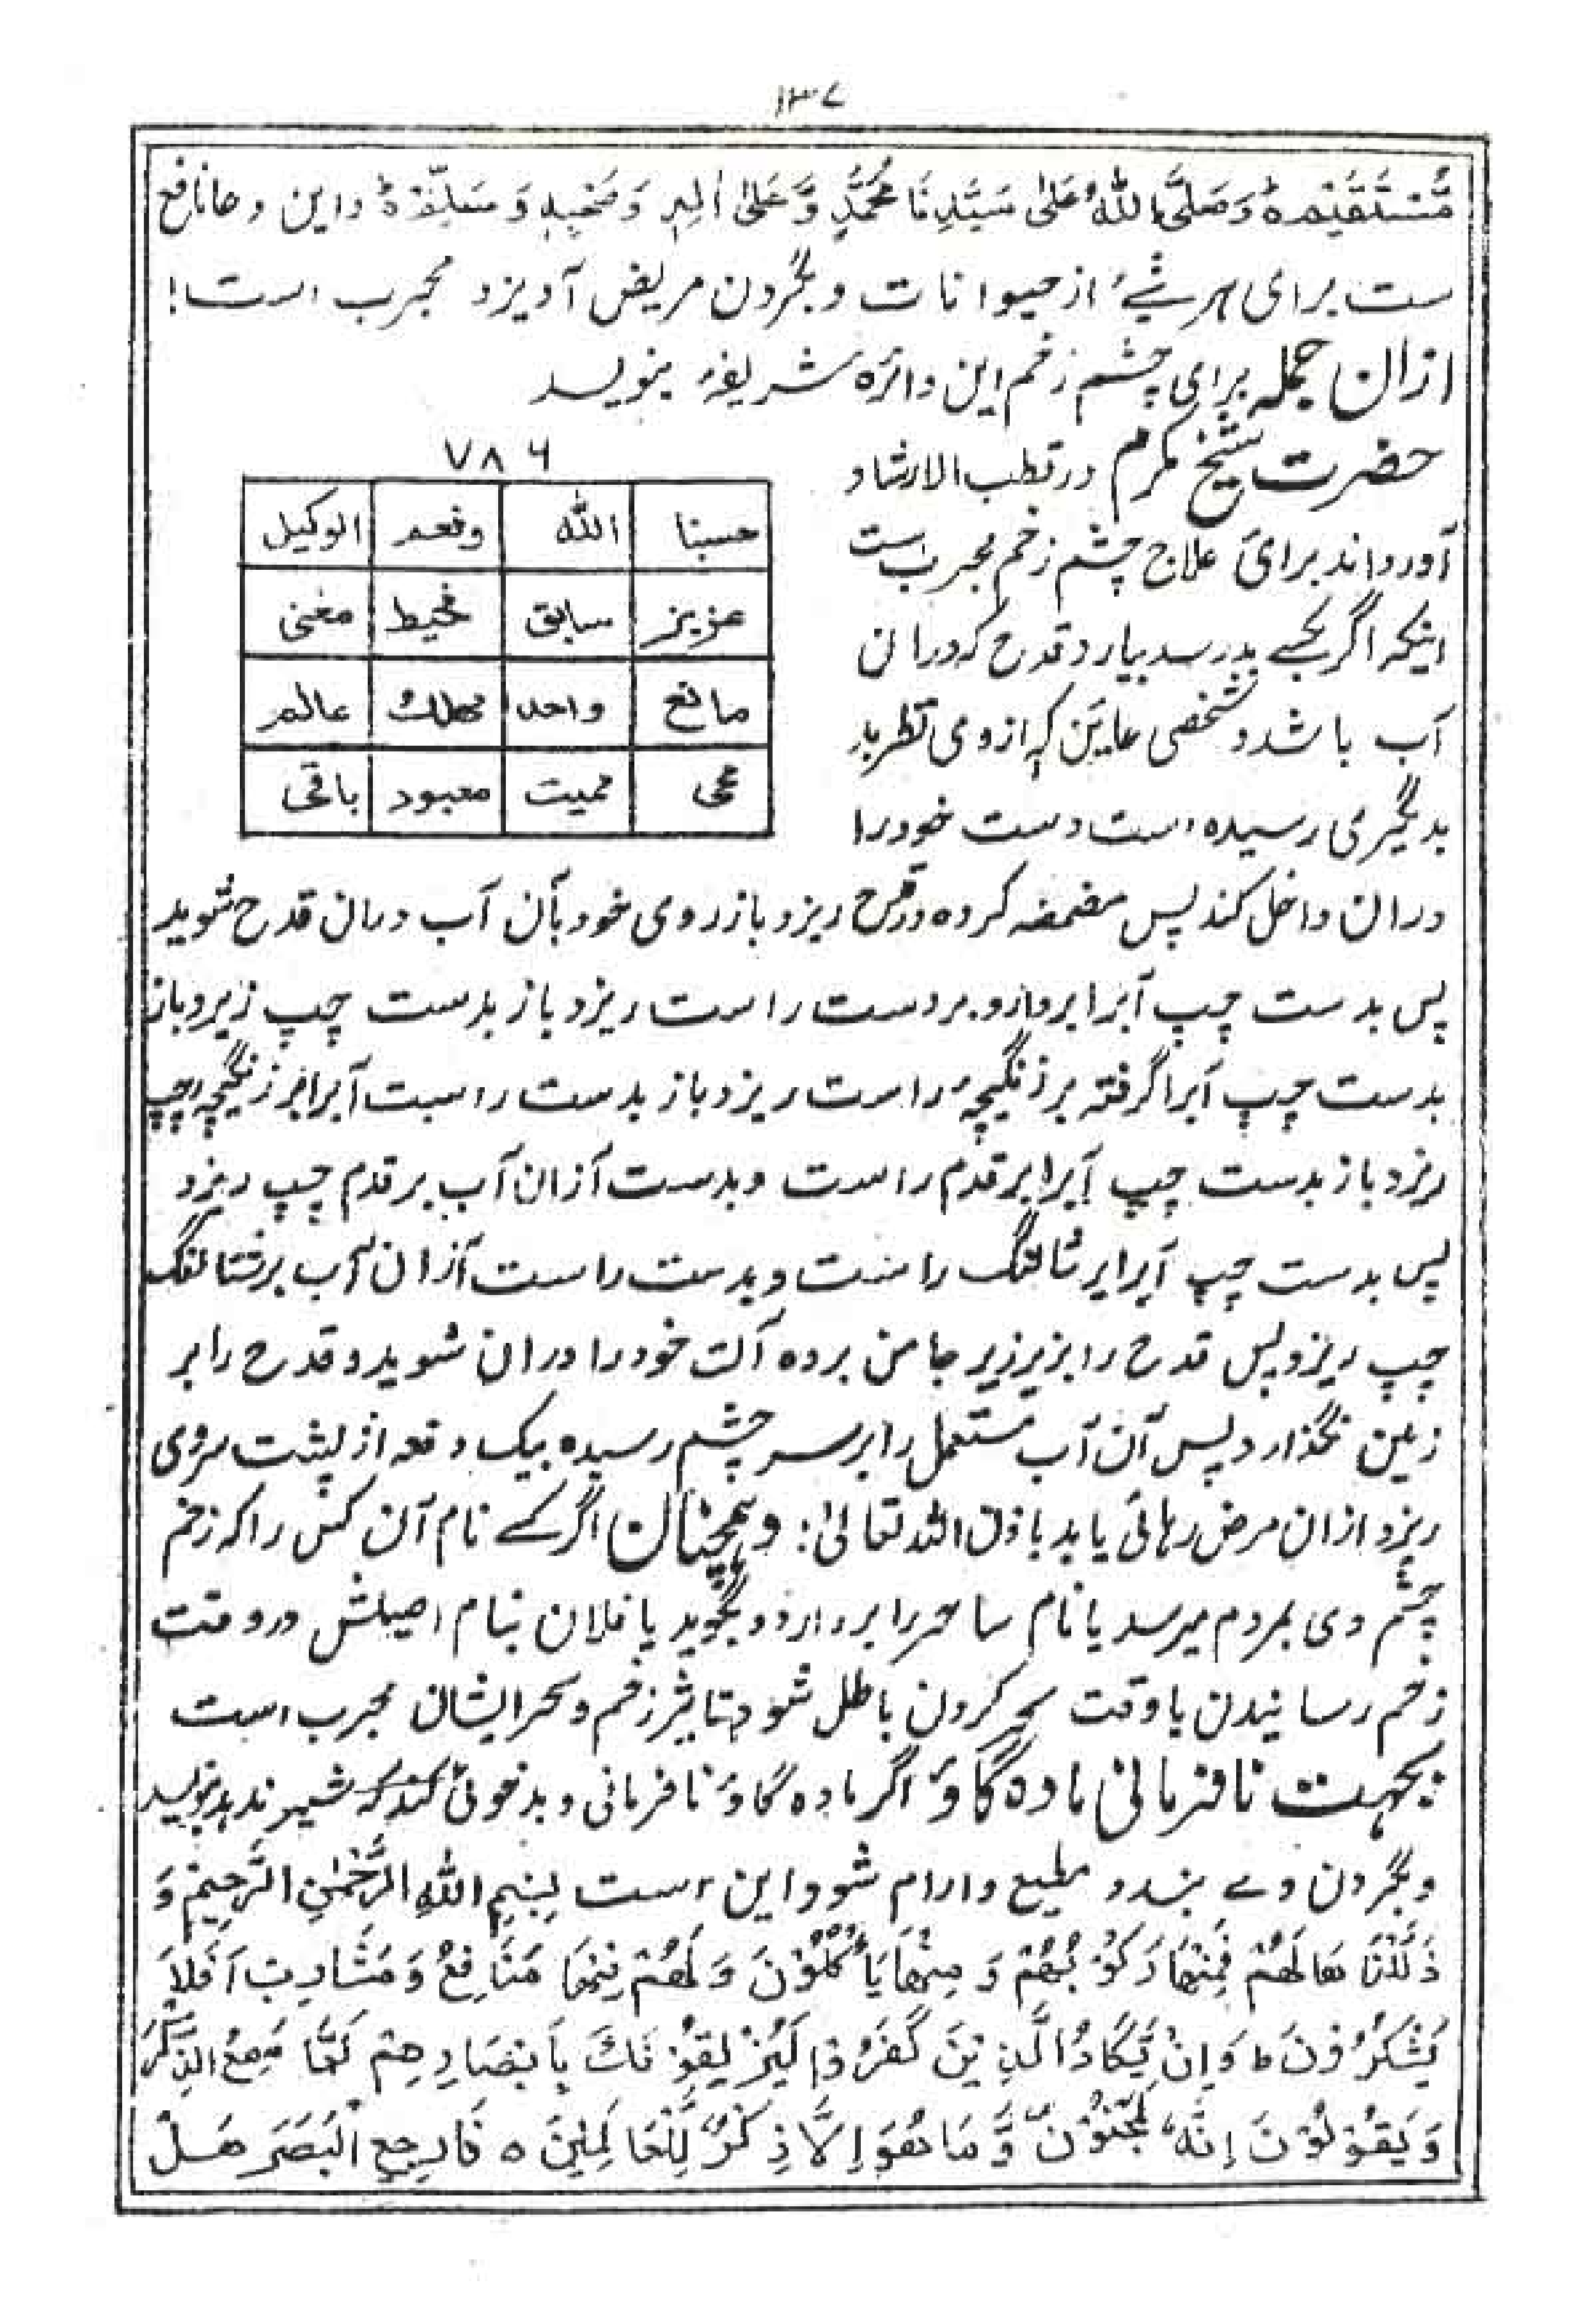 ۱۳۷
مُّسْتَقِيْمٍ ه وَصَلَّى اللهُ عَلٰى سَيِّدِنَا مُحَمَّدٍ وَّعَلٰى اٰلِهٖ وَصَحْبِهٖ وَسَلِّمْ ه واین دعا نافع
ست برای هر شیٔ از حیوانات و بگردن مریض آویزد مجرب است!
ازان جمله برای چشم زخم این دائره شریفه بنویسد
۷۸۶
حسبنا الله ونعم الوكيل
عزيز سابق محيط مغنى
مانع واحد مهلك عالم
محى مميت معبود باقى
حضرت شیخ مکرم در قطب الارشاد
آورده اند برای علاج چشم زخم مجرب ست
اینکه اگر بکسے بد رسد بیارد قدح که دران
آب باشد و شخصی عاین که از وی نظر بد
بدیگری رسیده است دست خود را
دران داخل کند پس مضمضه کرده در قدح ریزد باز روی خود بآن آب دران قدح شوید
پس بدست چپ آبرا بردارد بر دست راست ریزد باز بدست چپ زیر و باز
بدست چپ آبرا گرفته بر زنگیچهٔ راست ریزد باز بدست راست آبرا بر زنگیچه چپ
ریزد باز بدست چپ آبرا بر قدم راست و بدست آزان آب بر قدم چپ ریزد
پس بدست چپ آبرا بر شالنگ راست و بدست راست آزان آب بر شتالنگ
چپ ریزد پس قدح را بزیر زیر جامن برده آلت خود را دران شوید و قدح را بر
زمین نگذارد پس آن آب مستعمل را بر سر چشم رسیده بیک دفعه از پشت بروی
ریزد ازان مرض رهائی یابد باذن الله تعالیٰ: و همچنان اگر کسے نام آن کس را که زخم
چشم وی بمردم میرسد یا نام ساحر را بردارد و بگوید یا فلان بنام اصیلش در وقت
زخم رسانیدن یا وقت سحر کردن باطل شود تاثیر زخم و سحر ایشان مجرب است
بجهت نافرمانی ماده گاؤ اگر ماده گاؤ نافرمانی و بدخوئی کند که شیر ندهد بنویسد
و بگردن وے بندد مطیع و ارام شود این است بِسْمِ اللهِ الرَّحْمٰنِ الرَّحِيْمِ وَ
ذَلَّلْنَاهَا لَهُمْ فَمِنْهَا رَكُوْبُهُمْ وَمِنْهَا يَأْكُلُوْنَ وَلَهُمْ فِيْهَا مَنَافِعُ وَمَشَارِبُ اَفَلَا
يَشْكُرُوْنَ ط وَاِنْ يَّكَادُ الَّذِيْنَ كَفَرُوْا لَيُزْلِقُوْنَكَ بِاَبْصَارِهِمْ لَمَّا سَمِعُ الذِّكْرَ
وَيَقُوْلُوْنَ اِنَّهٗ لَمَجْنُوْنٌ وَّمَا هُوَ اِلَّا ذِكْرٌ لِّلْعَالَمِيْنَ ه فَارْجِعِ الْبَصَرَ هَلْ